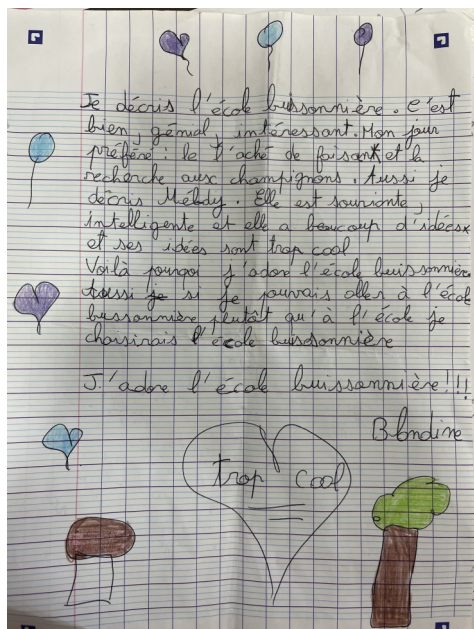 Je décris l'école buissonnière. C'est
bien, génial, intéressant. Mon jour
préféré : le l'aché de faisant et la
recherche aux champignons. Aussi je
décris Mélody. Elle est souriante,
intelligente et elle a beaucoup d'idées
et ses idées sont trop cool
Voilà pourqoi j'adore l'école buissonnière
aussi je si je pouvais aller à l'école
buissonnière plutôt qu'à l'école je
choisirais l'école buissonnière
J'adore l'école buissonnière!!!
Blandine
trop cool